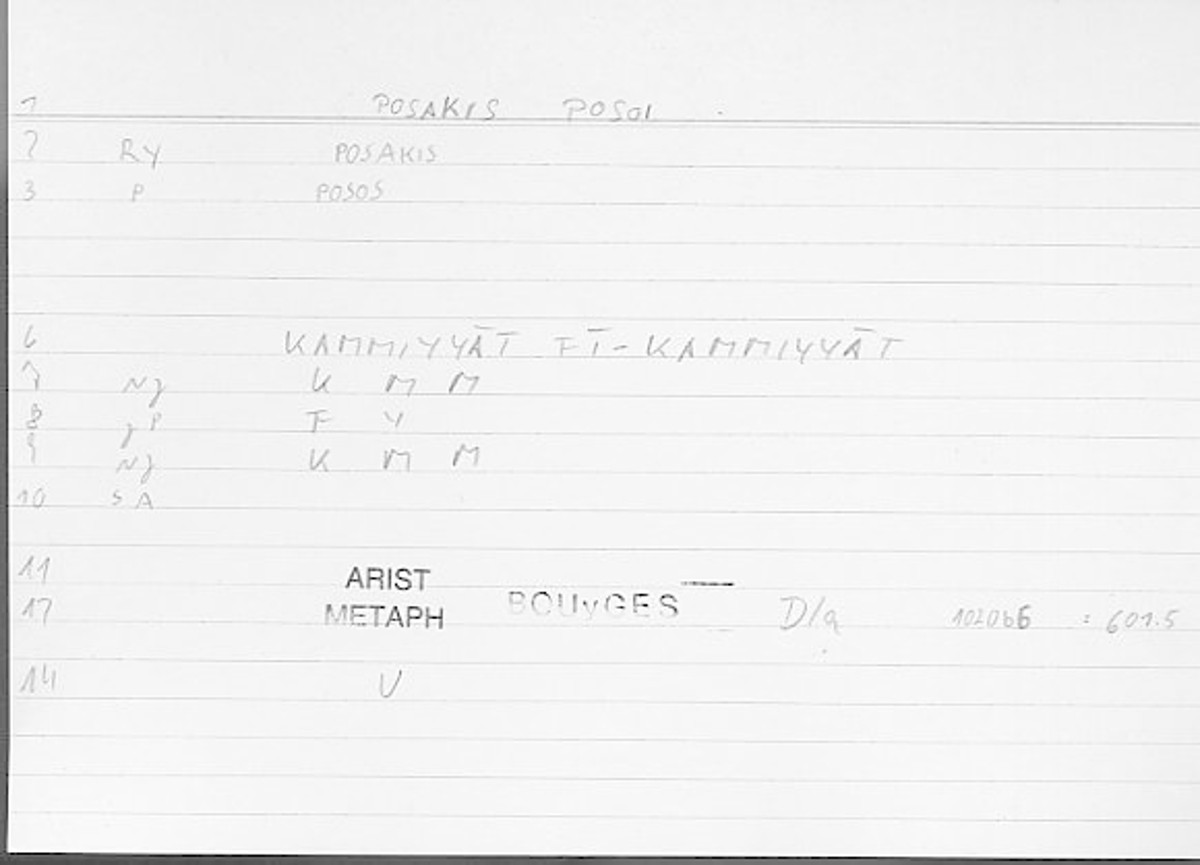 1 POSAKIS POSOI
2 RY POSAKIS
3 P POSOS
6 KAMMIYYĀT FĪ-KAMMIYYĀT
7 NJ K M M
8 JP F Y
9 NJ K M M
10 SA
11 ARIST
12 METAPH BOUYGES D/a 1020b6 : 601.5
14 V